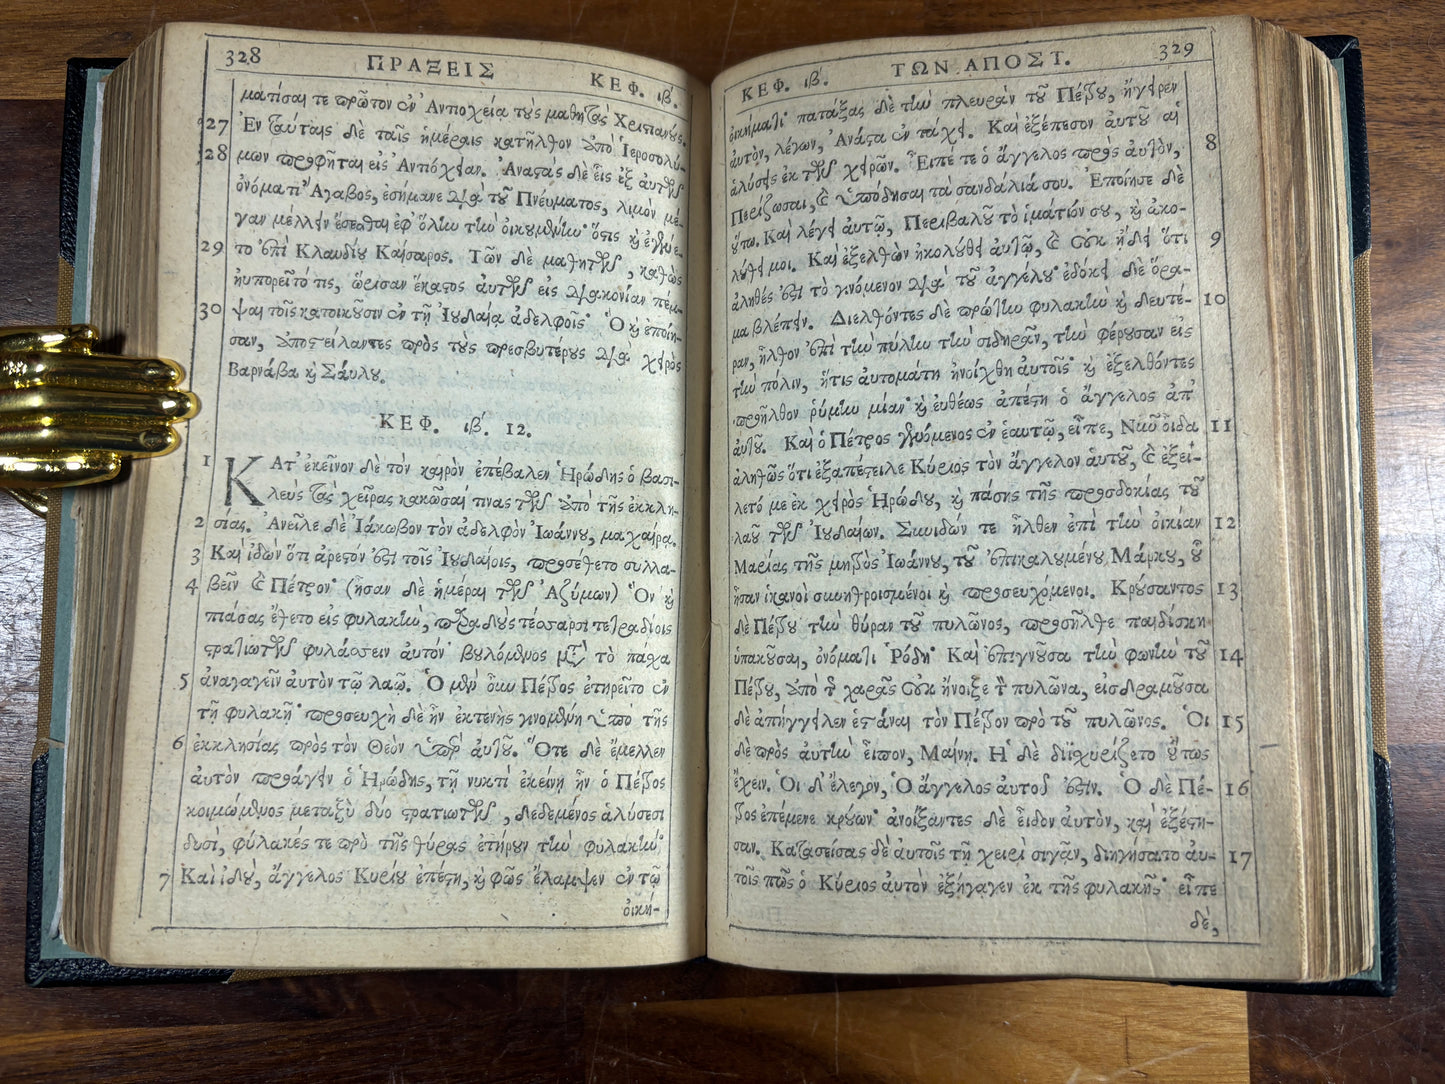 328 ΠΡΑΞΕΙΣ ΚΕΦ. ιβ'.
ματίσαι τε πρῶτον ἐν Ἀντιοχείᾳ τοὺς μαθητὰς Χριστιανούς.
27 Ἐν ταύταις δὲ ταῖς ἡμέραις κατῆλθον ἀπὸ Ἱεροσολύ-
28 μων προφῆται εἰς Ἀντιόχειαν. Ἀναστὰς δὲ εἷς ἐξ αὐτῶν
ὀνόματι Ἄγαβος, ἐσήμανε διὰ τοῦ Πνεύματος, λιμὸν μέ-
γαν μέλλειν ἔσεσθαι ἐφ' ὅλην τὴν οἰκουμένην· ὅστις καὶ ἐγένε-
29 το ἐπὶ Κλαυδίου Καίσαρος. Τῶν δὲ μαθητῶν, καθὼς
ηὐπορεῖτό τις, ὥρισαν ἕκαστος αὐτῶν εἰς διακονίαν πέμ-
30 ψαι τοῖς κατοικοῦσιν ἐν τῇ Ἰουδαίᾳ ἀδελφοῖς· Ὃ καὶ ἐποίη-
σαν, ἀποστείλαντες πρὸς τοὺς πρεσβυτέρους διὰ χειρὸς
Βαρνάβα καὶ Σαύλου.
ΚΕΦ. ιβ'. 12.
1 ΚΑτ' ἐκεῖνον δὲ τὸν καιρὸν ἐπέβαλεν Ἡρώδης ὁ βασι-
λεὺς τὰς χεῖρας κακῶσαί τινας τῶν ἀπὸ τῆς ἐκκλη-
2 σίας. Ἀνεῖλε δὲ Ἰάκωβον τὸν ἀδελφὸν Ἰωάννου, μαχαίρᾳ.
3 Καὶ ἰδὼν ὅτι ἀρεστόν ἐστι τοῖς Ἰουδαίοις, προσέθετο συλλα-
4 βεῖν καὶ Πέτρον· (ἦσαν δὲ ἡμέραι τῶν Ἀζύμων) Ὃν καὶ
πιάσας ἔθετο εἰς φυλακὴν, παραδοὺς τέσσαρσι τετραδίοις
στρατιωτῶν φυλάσσειν αὐτόν· βουλόμενος μετὰ τὸ πάσχα
5 ἀναγαγεῖν αὐτὸν τῷ λαῷ. Ὁ μὲν οὖν Πέτρος ἐτηρεῖτο ἐν
τῇ φυλακῇ· προσευχὴ δὲ ἦν ἐκτενὴς γινομένη ὑπὸ τῆς
6 ἐκκλησίας πρὸς τὸν Θεὸν ὑπὲρ αὐτοῦ. Ὅτε δὲ ἔμελλεν
αὐτὸν προάγειν ὁ Ἡρώδης, τῇ νυκτὶ ἐκείνῃ ἦν ὁ Πέτρος
κοιμώμενος μεταξὺ δύο στρατιωτῶν, δεδεμένος ἁλύσεσι
δυσὶ, φύλακές τε πρὸ τῆς θύρας ἐτήρουν τὴν φυλακήν·
7 Καὶ ἰδοὺ, ἄγγελος Κυρίου ἐπέστη, καὶ φῶς ἔλαμψεν ἐν τῷ
οἰκή-
ΚΕΦ. ιβ'. ΤΩΝ ΑΠΟΣΤ. 329
οἰκήματι· πατάξας δὲ τὴν πλευρὰν τοῦ Πέτρου, ἤγειρεν
αὐτὸν, λέγων, Ἀνάστα ἐν τάχει. Καὶ ἐξέπεσον αὐτοῦ αἱ
ἁλύσεις ἐκ τῶν χειρῶν. Εἶπέ τε ὁ ἄγγελος πρὸς αὐτὸν, 8
Περίζωσαι, καὶ ὑπόδησαι τὰ σανδάλιά σου. Ἐποίησε δὲ
οὕτω. Καὶ λέγει αὐτῷ, Περιβαλοῦ τὸ ἱμάτιόν σου, καὶ ἀκο-
λούθει μοι. Καὶ ἐξελθὼν ἠκολούθει αὐτῷ, καὶ οὐκ ᾔδει ὅτι 9
ἀληθές ἐστι τὸ γινόμενον διὰ τοῦ ἀγγέλου· ἐδόκει δὲ ὅρα-
μα βλέπειν. Διελθόντες δὲ πρώτην φυλακὴν καὶ δευτέ- 10
ραν, ἦλθον ἐπὶ τὴν πύλην τὴν σιδηρᾶν, τὴν φέρουσαν εἰς
τὴν πόλιν, ἥτις αὐτομάτη ἠνοίχθη αὐτοῖς· καὶ ἐξελθόντες
προῆλθον ῥύμην μίαν· καὶ εὐθέως ἀπέστη ὁ ἄγγελος ἀπ'
αὐτοῦ. Καὶ ὁ Πέτρος γενόμενος ἐν ἑαυτῷ, εἶπε, Νῦν οἶδα 11
ἀληθῶς ὅτι ἐξαπέστειλε Κύριος τὸν ἄγγελον αὑτοῦ, καὶ ἐξεί-
λετό με ἐκ χειρὸς Ἡρώδου, καὶ πάσης τῆς προσδοκίας τοῦ
λαοῦ τῶν Ἰουδαίων. Συνιδών τε ἦλθεν ἐπὶ τὴν οἰκίαν 12
Μαρίας τῆς μητρὸς Ἰωάννου, τοῦ ἐπικαλουμένου Μάρκου, οὗ
ἦσαν ἱκανοὶ συνηθροισμένοι καὶ προσευχόμενοι. Κρούσαντος 13
δὲ Πέτρου τὴν θύραν τοῦ πυλῶνος, προσῆλθε παιδίσκη
ὑπακοῦσαι, ὀνόματι Ῥόδη· Καὶ ἐπιγνοῦσα τὴν φωνὴν τοῦ 14
Πέτρου, ἀπὸ τῆς χαρᾶς οὐκ ἤνοιξε τὸν πυλῶνα, εἰσδραμοῦσα
δὲ ἀπήγγειλεν ἑστάναι τὸν Πέτρον πρὸ τοῦ πυλῶνος. Οἱ 15
δὲ πρὸς αὐτὴν εἶπον, Μαίνῃ. Ἡ δὲ διϊσχυρίζετο οὕτως
ἔχειν. Οἱ δ' ἔλεγον, Ὁ ἄγγελος αὐτοῦ ἐστίν. Ὁ δὲ Πέ- 16
τρος ἐπέμενε κρούων· ἀνοίξαντες δὲ εἶδον αὐτὸν, καὶ ἐξέστη-
σαν. Κατασείσας δὲ αὐτοῖς τῇ χειρὶ σιγᾷν, διηγήσατο αὐ- 17
τοῖς πῶς ὁ Κύριος αὐτὸν ἐξήγαγεν ἐκ τῆς φυλακῆς· εἶπε
δὲ,